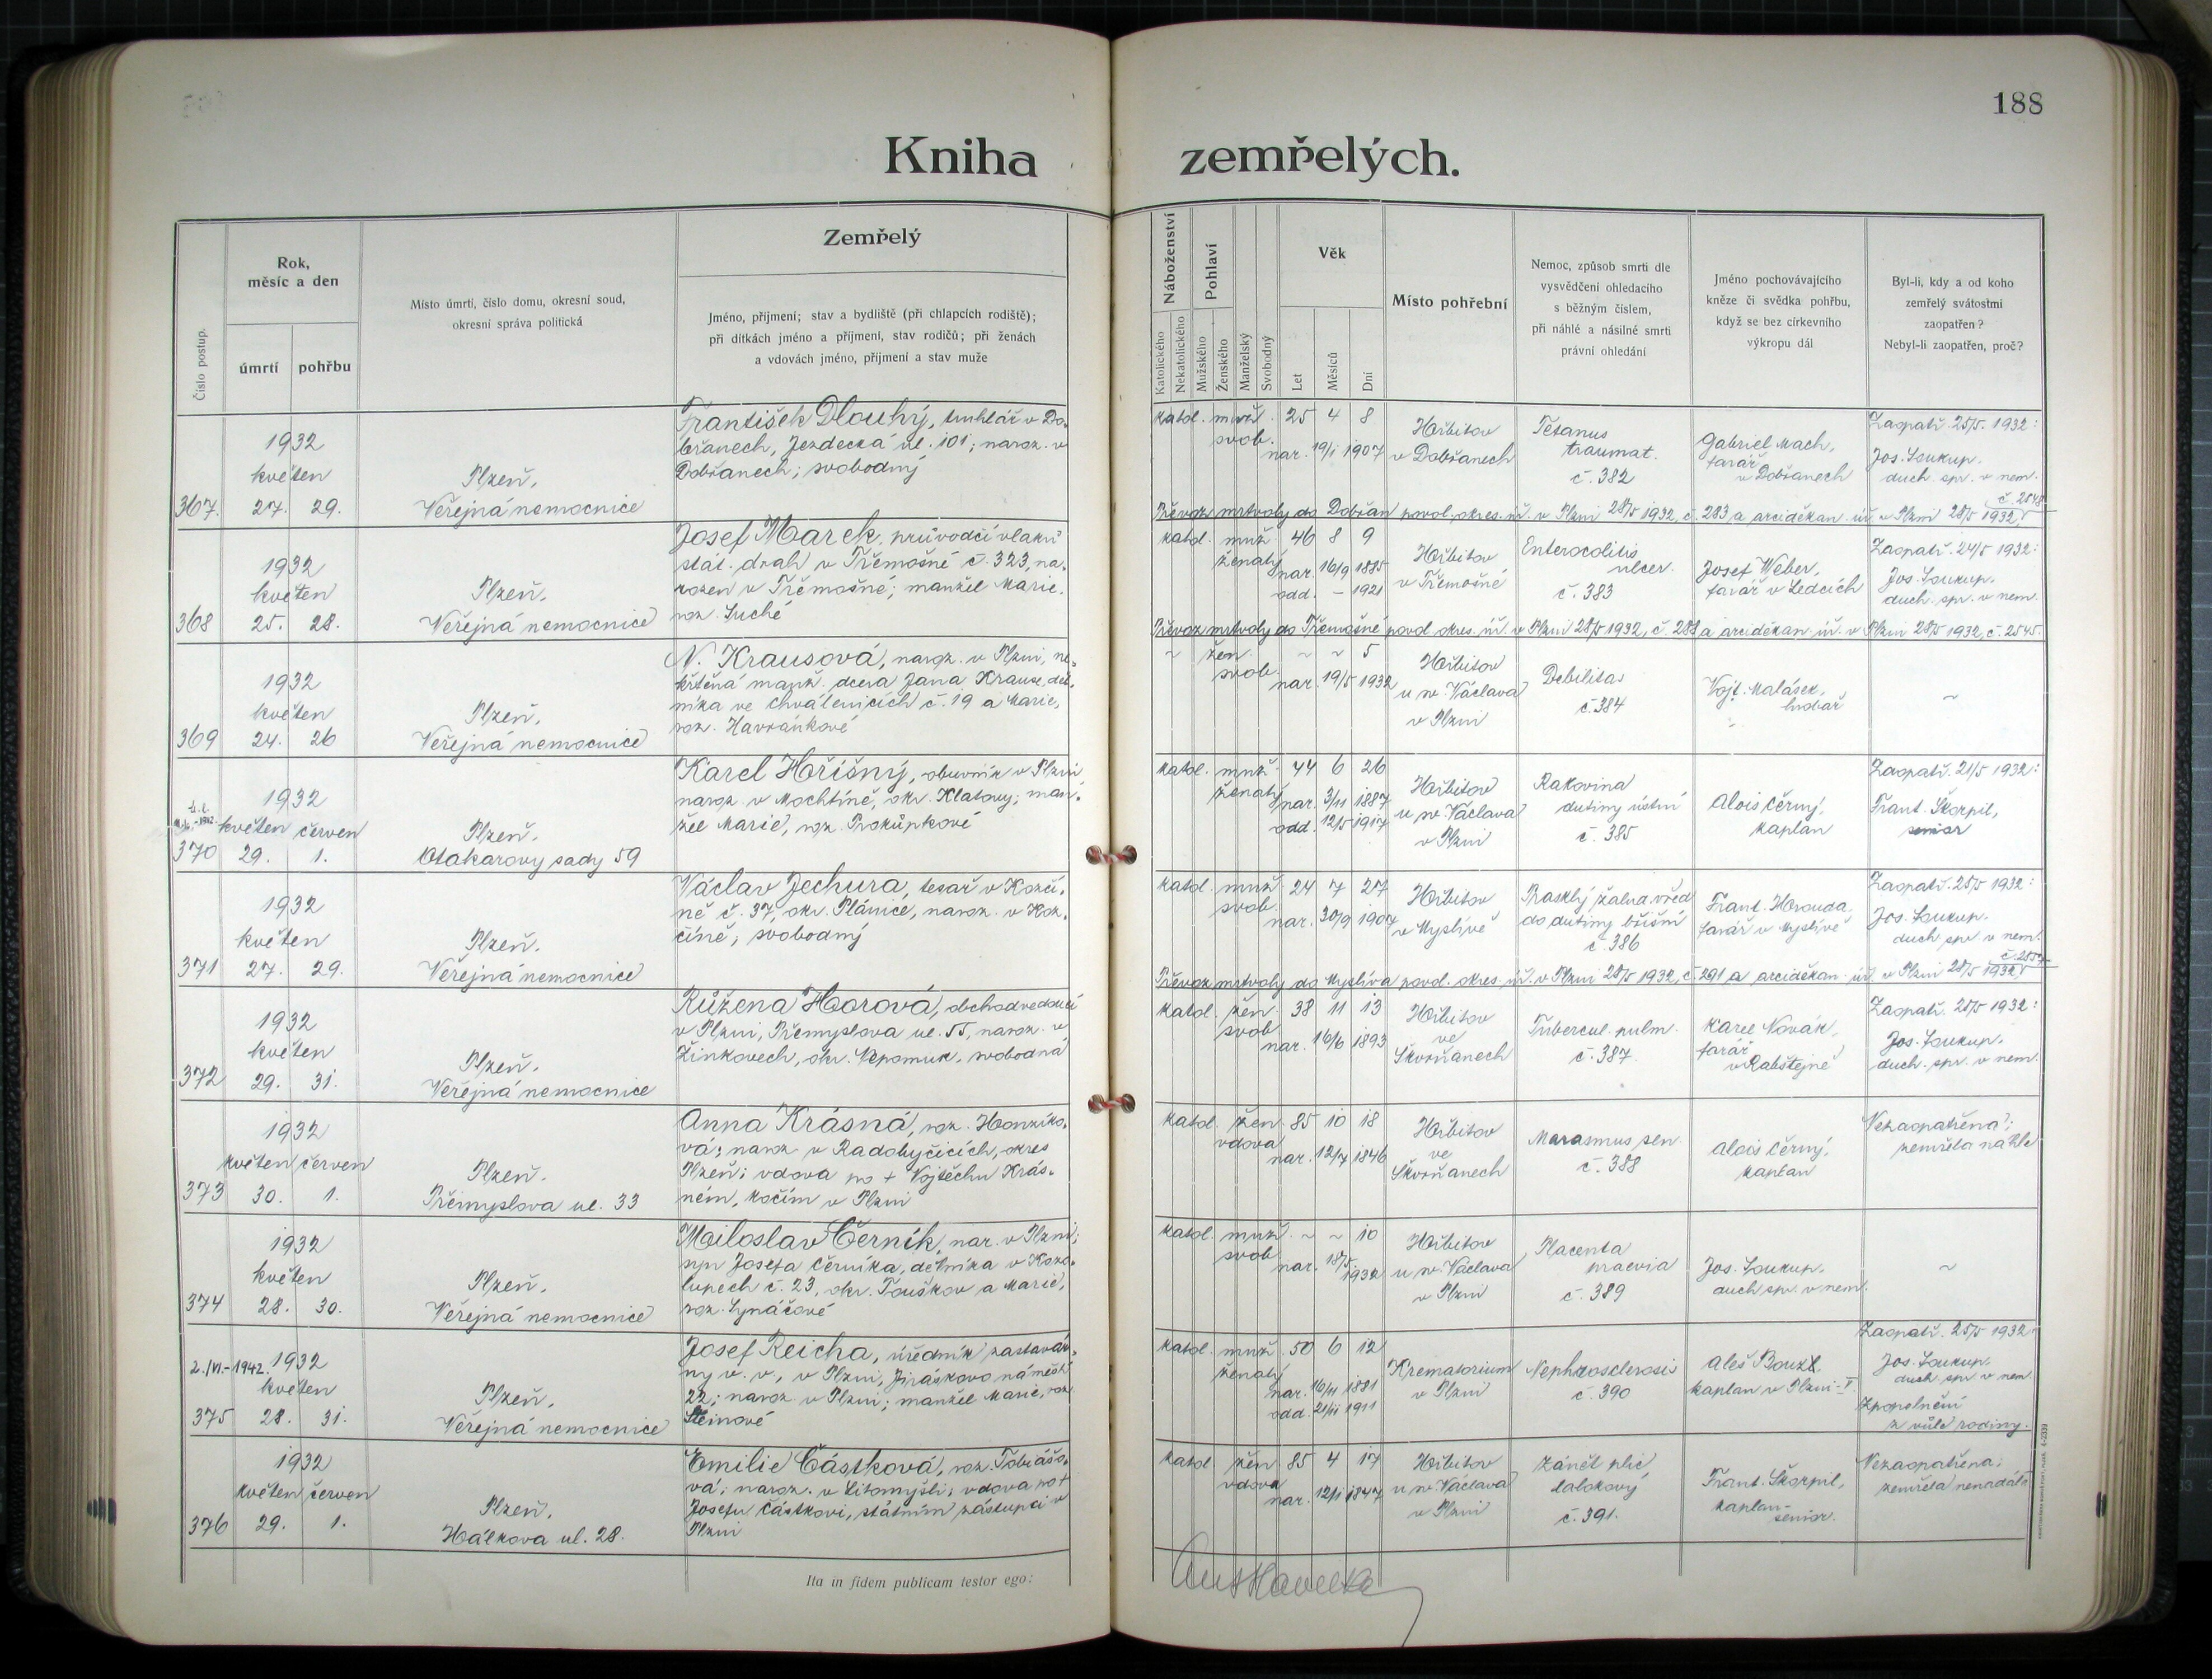 188
Kniha zemřelých.
Číslo postup.
Rok,
měsíc a den
úmrtí
pohřbu
Místo úmrtí, číslo domu, okresní soud,
okresní správa politická
Zemřelý
Jméno, příjmení; stav a bydliště (při chlapcích rodiště);
při dítkách jméno a příjmení, stav rodičů; při ženách
a vdovách jméno, příjmení a stav muže
Náboženství
Katolického
Nekatolického
Pohlaví
Mužského
Ženského
Manželský
Svobodný
Věk
Let
Měsíců
Dní
Místo pohřební
Nemoc, způsob smrti dle
vysvědčení ohledacího
s běžným číslem,
při náhlé a násilné smrti
právní ohledání
Jméno pochovávajícího
kněze či svědka pohřbu,
když se bez církevního
výkropu dál
Byl-li, kdy a od koho
zemřelý svátostmi
zaopatřen?
Nebyl-li zaopatřen, proč?
367.
1932
květen
27. 29.
Plzeň,
Veřejná nemocnice
František Dlouhý, truhlář v Do-
břanech, Jezdecká ul. 101; naroz. v
Dobřanech; svobodný
katol. muž. 25 4 8
svob.
nar. 19/1 1907
Hřbitov
v Dobřanech
Tetanus
traumat.
č. 382
Gabriel Mach,
farář
v Dobřanech
Zaopatř. 25/5. 1932:
Jos. Soukup.
duch. spr. v nem.
Převoz mrtvoly do Dobřan povol. okres. úř. v Plzni 28/5 1932, č. 283 a arciděkan. úř. v Plzni 28/5 1932
368
1932
květen
25. 28.
Plzeň,
Veřejná nemocnice
Josef Marek, průvodčí vlaků
stát. drah v Třemošné č. 323, na-
rozen v Třemošné; manžel Marie,
roz. Suché
katol. muž. 46 8 9
ženatý
nar. 16/9 1885
odd. – 1921
Hřbitov
v Třemošné
Enterocolitis
ulcer.
č. 383
Josef Weber,
farář v Ledcích
Zaopatř. 24/5 1932:
Jos. Soukup.
duch. spr. v nem.
Převoz mrtvoly do Třemošné povol. okres. úř. v Plzni 28/5 1932, č. 288 a arciděkan. úř. v Plzni 28/5 1932, č. 2545.
369
1932
květen
24. 26
Plzeň,
Veřejná nemocnice
N. Krausová, naroz. v Plzni, ne-
křtěná manž. dcera Jana Krause, děl-
níka ve Chválenicích č. 19 a Marie,
roz. Havránkové
~ žen. ~ ~ 5
svob.
nar. 19/5 1932
Hřbitov
u sv. Václava
v Plzni
Debilitas
č. 384
Vojt. Malásek,
hrobař
~
370
1932
květen červen
29. 1.
Plzeň,
Otakarovy sady 59
Karel Hoříšný, obuvník v Plzni
naroz. v Mochtíně, okr. Klatovy; man-
žel Marie, roz. Prokůpkové
katol. muž. 44 6 26
ženatý
nar. 3/11 1887
odd. 12/5 1917
Hřbitov
u sv. Václava
v Plzni
Rakovina
dutiny ústní
č. 385
Alois Černý,
kaplan
Zaopatř. 21/5 1932:
Frant. Škorpil,
senior
371
1932
květen
27. 29.
Plzeň,
Veřejná nemocnice
Václav Jechura, tesař v Kozčí-
ně č. 37, okr. Plánice, naroz. v Koz-
číně, svobodný
katol. muž. 24 7 27
svob.
nar. 30/9 1907
Hřbitov
v Myslivě
Prasklý žalud. vřed
do dutiny břišní
č. 386
Frant. Hrouda,
farář v Myslivě
Zaopatř. 25/5 1932:
Jos. Soukup.
duch. spr. v nem.
Převoz mrtvoly do Myslíva povol. okres. úř. v Plzni 28/5 1932, č. 291 a arciděkan. úř. v Plzni 28/5 1932
372
1932
květen
29. 31.
Plzeň,
Veřejná nemocnice
Růžena Horová, obchodvedoucí
v Plzni, Přemyslova ul. 55, naroz. v
Žinkovech, okr. Nepomuk, svobodná
katol. žen. 38 11 13
svob.
nar. 16/6 1893
Hřbitov
ve
Skvrňanech
Tubercul. pulm.
č. 387.
Karel Novák,
farář
v Rabštejně
Zaopatř. 25/5 1932:
Jos. Soukup.
duch. spr. v nem.
373
1932
květen červen
30. 1.
Plzeň.
Přemyslova ul. 33
Anna Krásná, roz. Honzíko-
vá; naroz. v Radobyčicích, okres
Plzeň; vdova po + Vojtěchu Krás-
ném, kočím v Plzni
katol. žen. 85 10 18
vdova
nar. 12/7 1846
Hřbitov
ve
Skvrňanech
Marasmus sen.
č. 388
Alois Černý,
kaplan
Nezaopatřena;
zemřela náhle
374
1932
květen
28. 30.
Plzeň,
Veřejná nemocnice
Miloslav Černík, nar. v Plzni;
syn Josefa Černíka, dělníka v Kozo-
lupech č. 23, okr. Touškov a Marie,
roz. Lynáčové
katol. muž. ~ ~ 10
svob.
nar. 18/5 1932
Hřbitov
u sv. Václava
v Plzni
Placenta
praevia
č. 389
Jos. Soukup.
duch. spr. v nem.
~
375
2./VI.-1942. 1932
květen
28. 31.
Plzeň,
Veřejná nemocnice
Josef Reicha, úředník zastavár-
ny v. v., v Plzni, Jiráskovo náměstí
22; naroz. v Plzni; manžel Marie, roz.
Steinové
katol. muž. 50 6 12
ženatý
nar. 16/11 1881
odd. 21/11 1911
Krematorium
v Plzni
Nephrosclerosis
č. 390
Aleš
kaplan v Plzni-I.
Zaopatř. 25/5 1932:
Jos. Soukup.
duch. spr. v nem.
Zpopelnění
z vůle rodiny.
376
1932
květen červen
29. 1.
Plzeň,
Hálkova ul. 28.
Emilie Částková, roz. Tobiášo-
vá; naroz. v Litomyšli; vdova po +
Josefu Částkovi, státním zástupci v
Plzni
katol. žen. 85 4 17
vdova
nar. 12/1 1847
Hřbitov
u sv. Václava
v Plzni
Zánět plic
lalokový
č. 391.
Frant. Škorpil,
kaplan-
senior.
Nezaopatřena;
zemřela nenadále
Ita in fidem publicam testor ego: